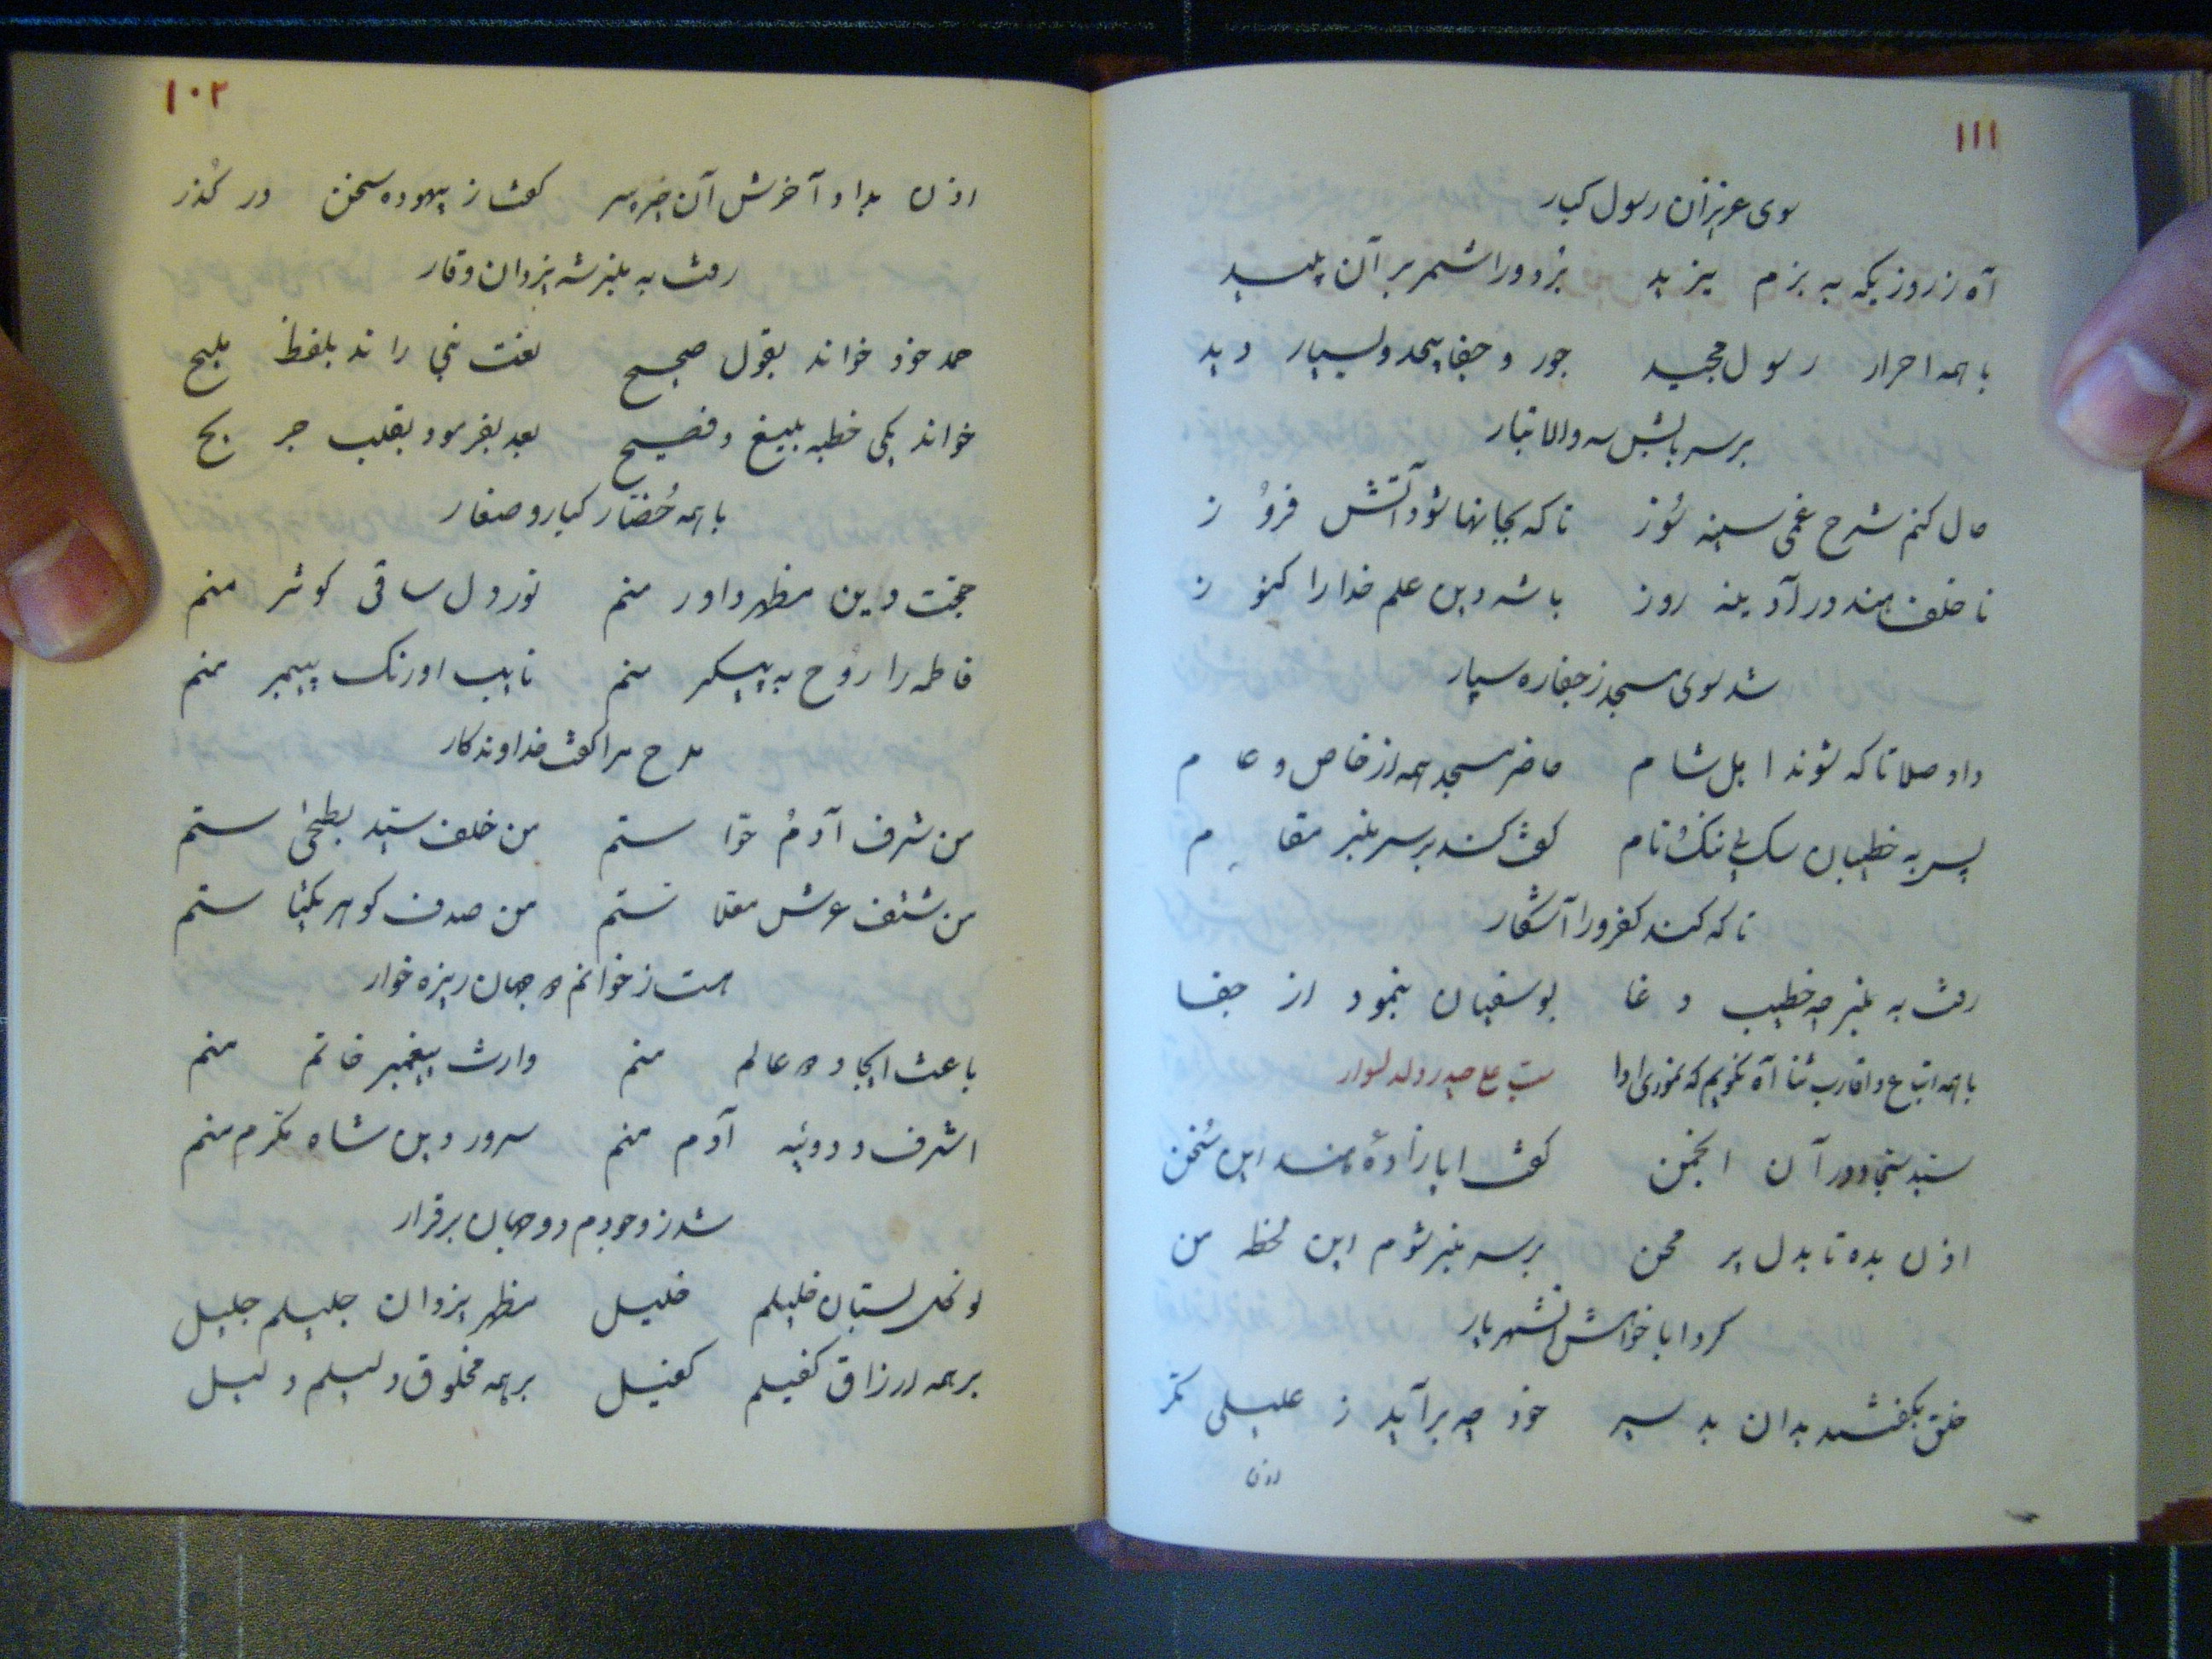 ۱۱۱
سوی عزیزان رسول کبار
آه ز روزیکه به بزم یزید برد ورا شمر بر آن پلید
با همه احرار رسول مجید جور و جفا بیحد و بسیار دید
بر سر بالینش سه والاتبار
حال کنم شرح غمی سینه سُوز تا که بجانها شود آتش فروُز
ناخلف هند در آدینه روز با شه دین علم خدا را کنوز
شد سوی مسجد ز جفا ره سپار
داد صلا تا که شوند اهل شام حاضر مسجد همه از خاص و عام
پس به خطیبان سک بی ننک و نام کفت کند بر سر منبر مقام
تا که کند کفر ورا آشکار
رفت به منبر چه خطیب دغا بوسفیان بنمود از جفا
با همه اتباع و اقارب ثنا آه نکویم که نمودی ادا
سبّ علی حیدر دلدل سوار
سید سجاد در آن انجمن کفت ایا زادهٔ هند این سُخن
اذن بده تا بدل پر محن بر سر منبر شوم این لحظه من
کرد ابا خواهش آنشهریار
خلق بکفتند بدان بد سیر خود چه برآید ز علیلی مکر
اذن
۱۰۲
اذن بداد آخرش آن خیره سر کفت ز بیهوده سخن در کُذر
رفت به منبر شه یزدان وقار
حمد خود خواند بقول صحیح نعت نبی راند بلفظ ملیح
خواند یکی خطبه بلیغ و فصیح بعد بفرمود بقلب جریح
با همه حُضّار کبار و صغار
حجت دین مظهر داور منم نور دل ساقی کوثر منم
فاطمه را روُح به پیکر منم نایب اورنک پیمبر منم
مدح مرا کفت خداوندکار
من شرف آدمُ حوّا ستم من خلف سیّد بطحیٰ ستم
من شنف عرش معلّا ستم من صدف کوهر یکتا ستم
هست ز خوانم دو جهان ریزه خوار
باعث ایجاد دو عالم منم وارث پیغمبر خاتم منم
اشرف و دودیّه آدم منم سرور دین شاه مکرّم منم
شد ز وجودم دو جهان برقرار
نوکل بستان خلیلم خلیل مظهر یزدان جلیلم جلیل
بر همه ارزاق کفیلم کفیل بر همه مخلوق دلیلم دلیل